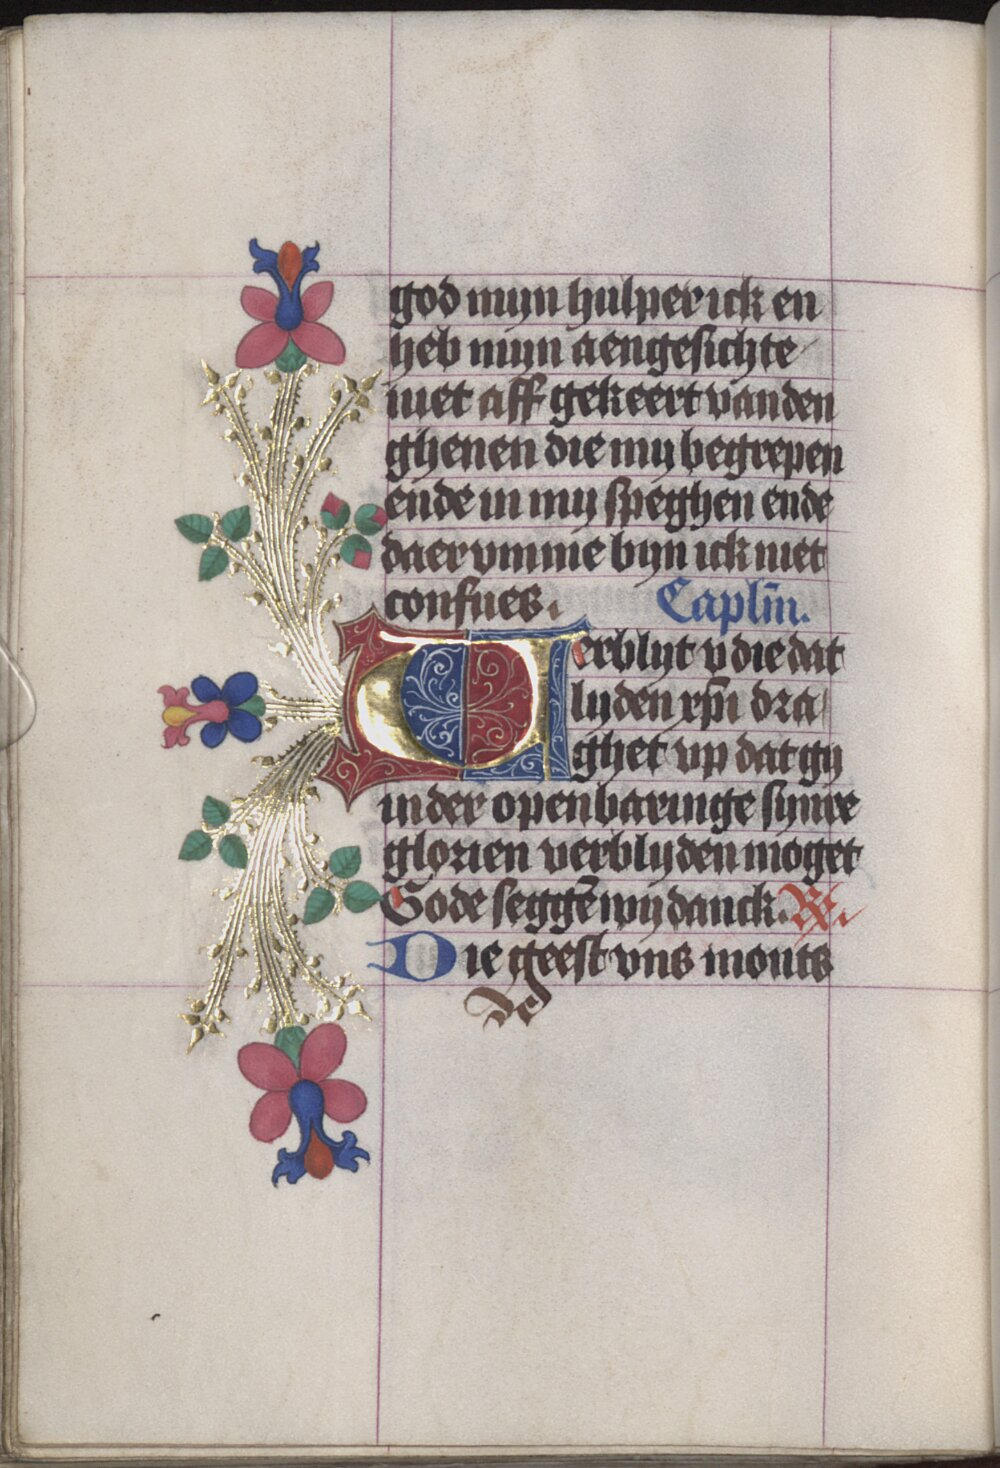 god mijn hulper ick en
heb mijn aengesichte
niet aff gekeert vanden
ghenen die my begrepen
ende in my speghen ende
daer vmme bijn ick niet
confues. Caplm̄.
Verblijt v die dat
lyden xp̄i dra
ghet vp dat gy
inder openbaringe synre
glorien verblyden moget
Gode seggē wy danck. R.
Die geest vns monts